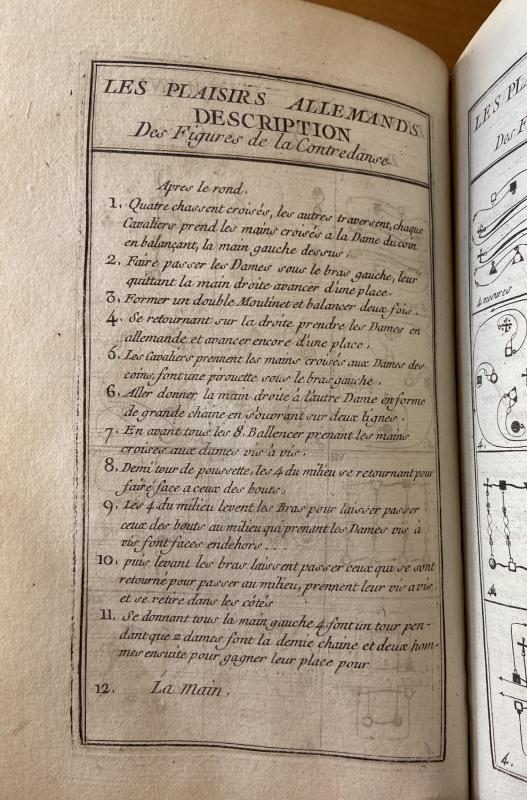 LES PLAISIRS ALLEMANDS
DESCRIPTION
Des Figures de la Contredanse
Apres le rond.
1. Quatre chassent croisés, les autres traversent, chaque
Cavaliers prend les mains croisés a la Dame du coin
en balançant, la main gauche dessus.
2. Faire passer les Dames sous le bras gauche, leur
quittant la main droite avancer d'une place.
3. Former un double Moulinet et balancer deux fois.
4. Se retournant sur la droite prendre les Dames en
allemande et avancer encore d'une place.
5. Les Cavaliers prennent les mains croisés aux Dames des
coins, font une pirouette sous le bras gauche.
6. Aller donner la main droite à l'autre Dame en forme
de grande chaine en s'ouvrant sur deux lignes.
7. En avant tous les 8. Ballencer prenant les mains
croisées aux dames vis à vis.
8. Demi tour de poussette, les 4 du milieu se retournant pour
faire face a ceux des bouts.
9. Les 4 du milieu levent les Bras pour laisser passer
ceux des bouts au milieu qui prenant les Dames vis à
vis font faces endehors...
10. puis levant les bras laissent passer ceux qui se sont
retourné pour passer au milieu, prennent leur vis a vis
et se retire dans les côtés
11. Se donnant tous la main gauche 4 font un tour pen-
dant que 2 dames font la demie chaine et deux hom-
mes ensuite pour gagner leur place pour
12. La main.
LES PLA
Des F
4 mesures
4.
4
4.